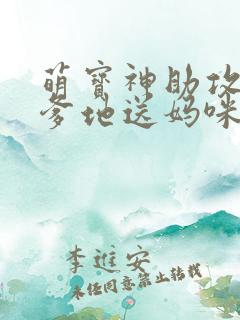 萌宝神助攻
爹地送妈咪
李进安
未经同意禁止转载